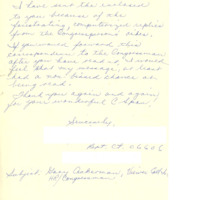 I have sent the enclosed
to you because of the
frustrating, computerized replies
from the Congressperson's sides.
If you would forward this
correspondence to the Congressman
after you have read it, I would
feel that my message, at least
had a non biased chance of
being read.
Thank you again and again
for your wonderful C Span!
Sincerely,
Bpt. CT. 06606
Subject: Gary Ackerman,
NY/Congressman